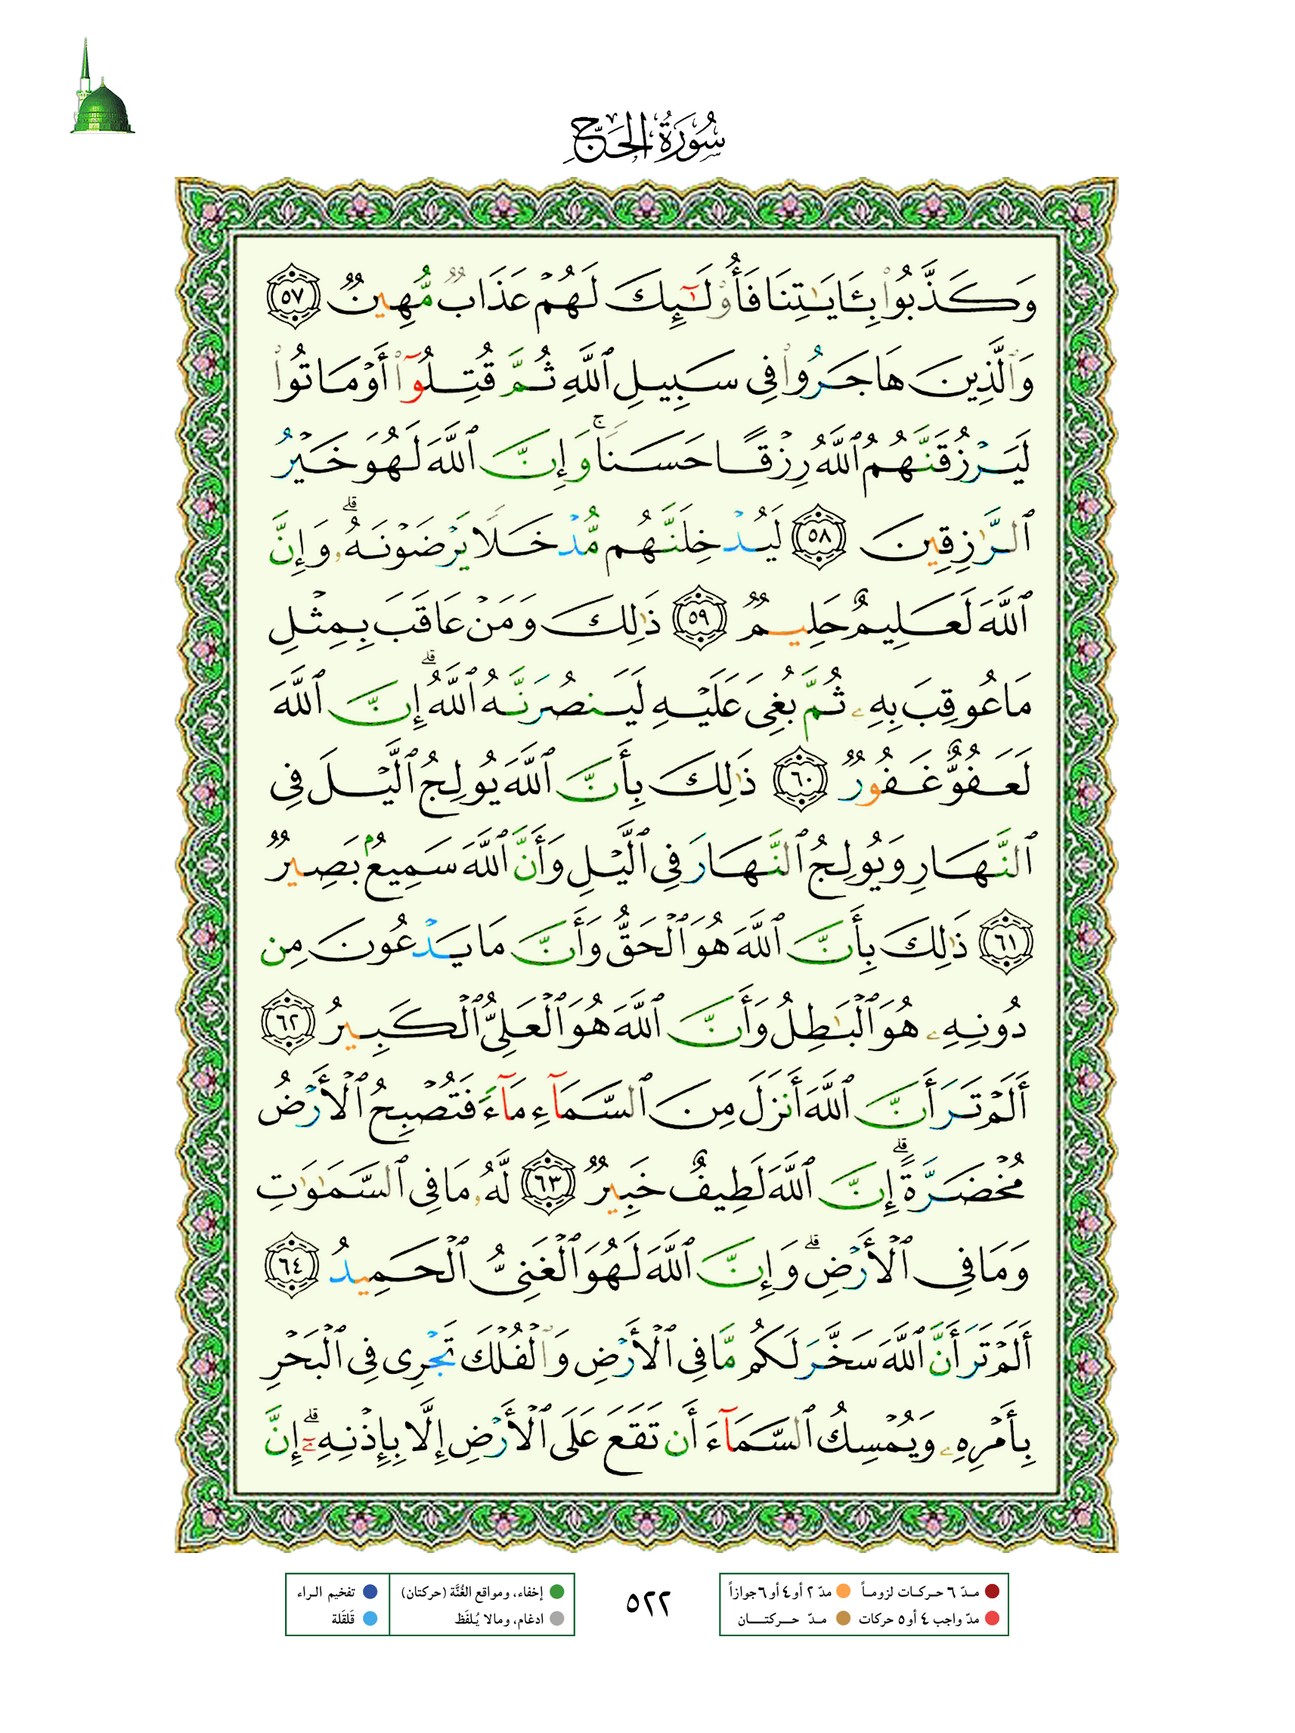 سُورَةُ الحَجِّ
وَكَذَّبُوا۟ بِـَٔايَـٰتِنَا فَأُو۟لَـٰٓئِكَ لَهُمْ عَذَابٌ مُّهِينٌ ٥٧
وَٱلَّذِينَ هَاجَرُوا۟ فِى سَبِيلِ ٱللَّهِ ثُمَّ قُتِلُوٓا۟ أَوْ مَاتُوا۟
لَيَرْزُقَنَّهُمُ ٱللَّهُ رِزْقًا حَسَنًا ۚ وَإِنَّ ٱللَّهَ لَهُوَ خَيْرُ
ٱلرَّٰزِقِينَ ٥٨ لَيُدْخِلَنَّهُم مُّدْخَلًا يَرْضَوْنَهُۥ ۗ وَإِنَّ
ٱللَّهَ لَعَلِيمٌ حَلِيمٌ ٥٩ ذَٰلِكَ وَمَنْ عَاقَبَ بِمِثْلِ
مَا عُوقِبَ بِهِۦ ثُمَّ بُغِىَ عَلَيْهِ لَيَنصُرَنَّهُ ٱللَّهُ ۗ إِنَّ ٱللَّهَ
لَعَفُوٌّ غَفُورٌ ٦٠ ذَٰلِكَ بِأَنَّ ٱللَّهَ يُولِجُ ٱلَّيْلَ فِى
ٱلنَّهَارِ وَيُولِجُ ٱلنَّهَارَ فِى ٱلَّيْلِ وَأَنَّ ٱللَّهَ سَمِيعٌۢ بَصِيرٌ
٦١ ذَٰلِكَ بِأَنَّ ٱللَّهَ هُوَ ٱلْحَقُّ وَأَنَّ مَا يَدْعُونَ مِن
دُونِهِۦ هُوَ ٱلْبَـٰطِلُ وَأَنَّ ٱللَّهَ هُوَ ٱلْعَلِىُّ ٱلْكَبِيرُ ٦٢
أَلَمْ تَرَ أَنَّ ٱللَّهَ أَنزَلَ مِنَ ٱلسَّمَآءِ مَآءً فَتُصْبِحُ ٱلْأَرْضُ
مُخْضَرَّةً ۗ إِنَّ ٱللَّهَ لَطِيفٌ خَبِيرٌ ٦٣ لَّهُۥ مَا فِى ٱلسَّمَـٰوَٰتِ
وَمَا فِى ٱلْأَرْضِ ۗ وَإِنَّ ٱللَّهَ لَهُوَ ٱلْغَنِىُّ ٱلْحَمِيدُ ٦٤
أَلَمْ تَرَ أَنَّ ٱللَّهَ سَخَّرَ لَكُم مَّا فِى ٱلْأَرْضِ وَٱلْفُلْكَ تَجْرِى فِى ٱلْبَحْرِ
بِأَمْرِهِۦ وَيُمْسِكُ ٱلسَّمَآءَ أَن تَقَعَ عَلَى ٱلْأَرْضِ إِلَّا بِإِذْنِهِۦٓ ۗ إِنَّ
مـدّ ٦ حـركـات لزومـاً مدّ ٢ أو ٤ أو ٦ جوازاً
مدّ واجب ٤ أو ٥ حركات مـدّ حـــركتـــان
٥٢٢
إخفاء، ومواقع الغُنَّة (حركتان) تفخيم الـراء
ادغام، ومالا يُـلفَظ قَلقَلة